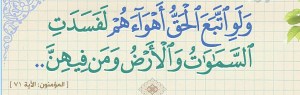 وَلَوِ ٱتَّبَعَ ٱلْحَقُّ أَهْوَآءَهُمْ لَفَسَدَتِ
ٱلسَّمَٰوَٰتُ وَٱلْأَرْضُ وَمَن فِيهِنَّ..
[ المؤمنون: الآية ٧١ ]